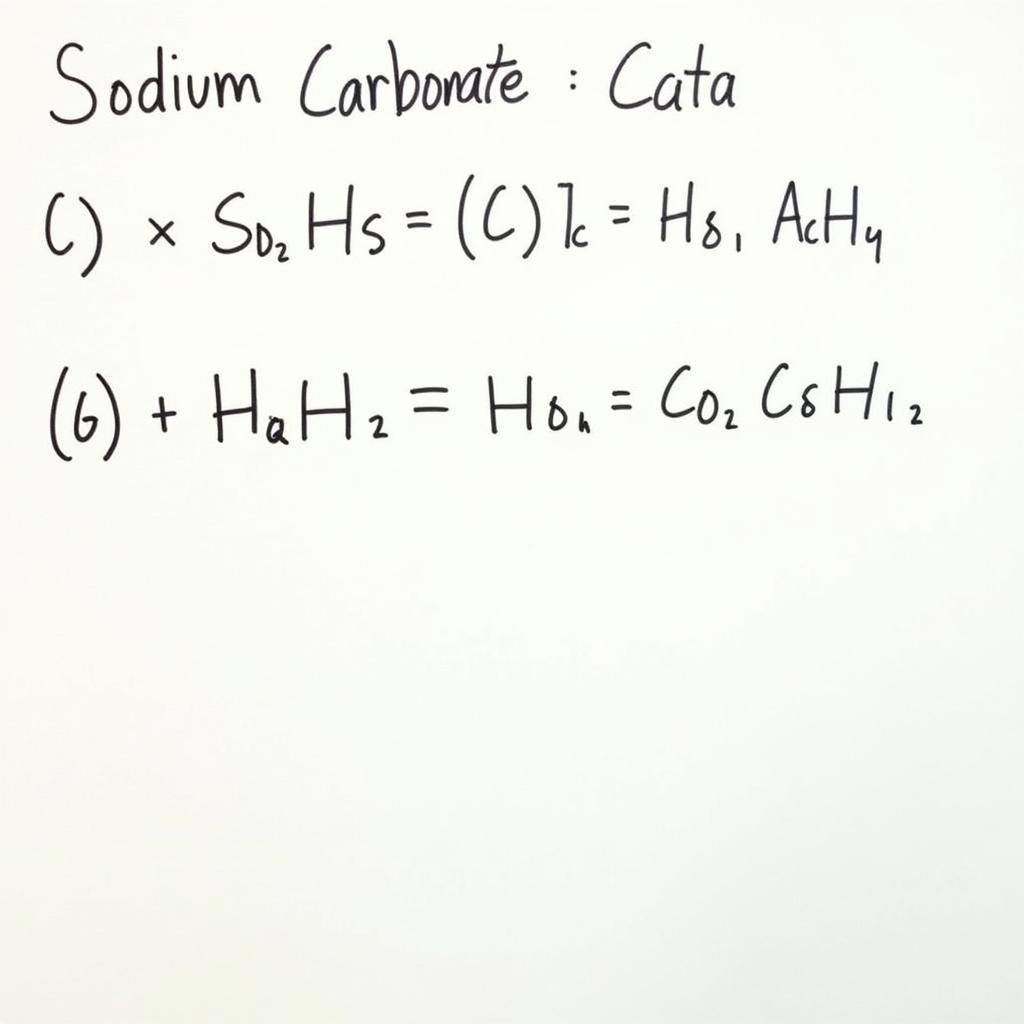 Sodium Carbonate : Cata
C) × SO₂ Hs = (C) = H8, AcH₄
(6) + HaH₂ = H8ₕ = CO₂ C8H1₂